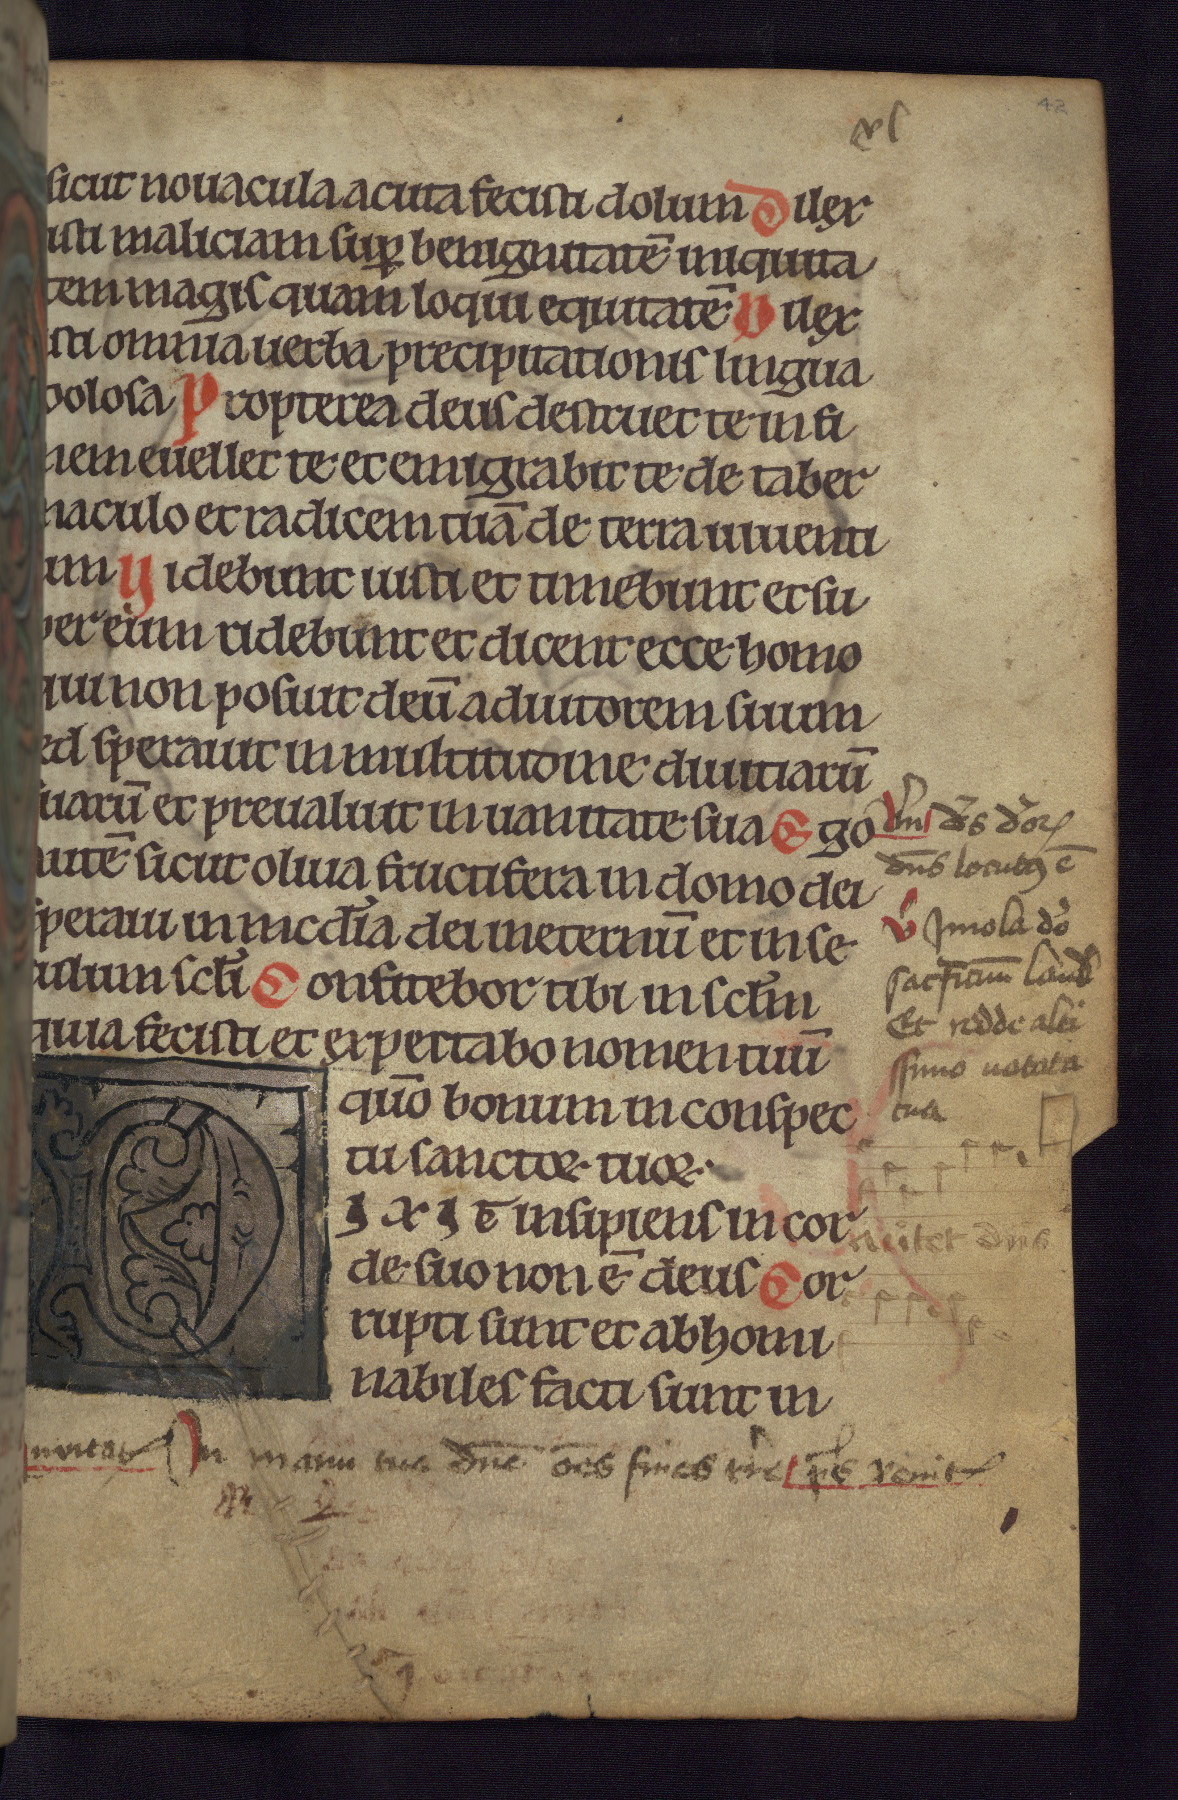 42
xl
sicut nouacula acuta fecisti dolum Dilex
isti maliciam sup benignitatē iniquita
tem magis quam loqui equitatē Dilex
isti omnia uerba precipitationis lingua
dolosa Propterea deus destruet te in fi
nem euellet te et emigrabit te de taber
naculo et radicem tuā de terra uiuenti
um Videbunt iusti et timebunt et su
per eum ridebunt et dicent ecce homo
qui non posuit deū adiutorem suum
ed sperauit in multitudine diuitiarū
suarū et preualuit in uanitate sua Ego
autē sicut oliua fructifera in domo dei
speraui in mcdīa dei in eternū et in se
culum sclī Confitebor tibi in sclm
quia fecisti et expectabo nomen tuū
quō bonum in conspec
tu sanctoꝝ tuoꝝ
DIXIT insipiens in cor
de suo non ē deus Cor
rupti sunt et abhomi
nabiles facti sunt in
ds deoꝝ
dns locutꝰ ē
Jmola do
sacficium laud
Et redde alti
ssimo uota
tua
dns
In manu tua dne oēs fines tre ps Venite